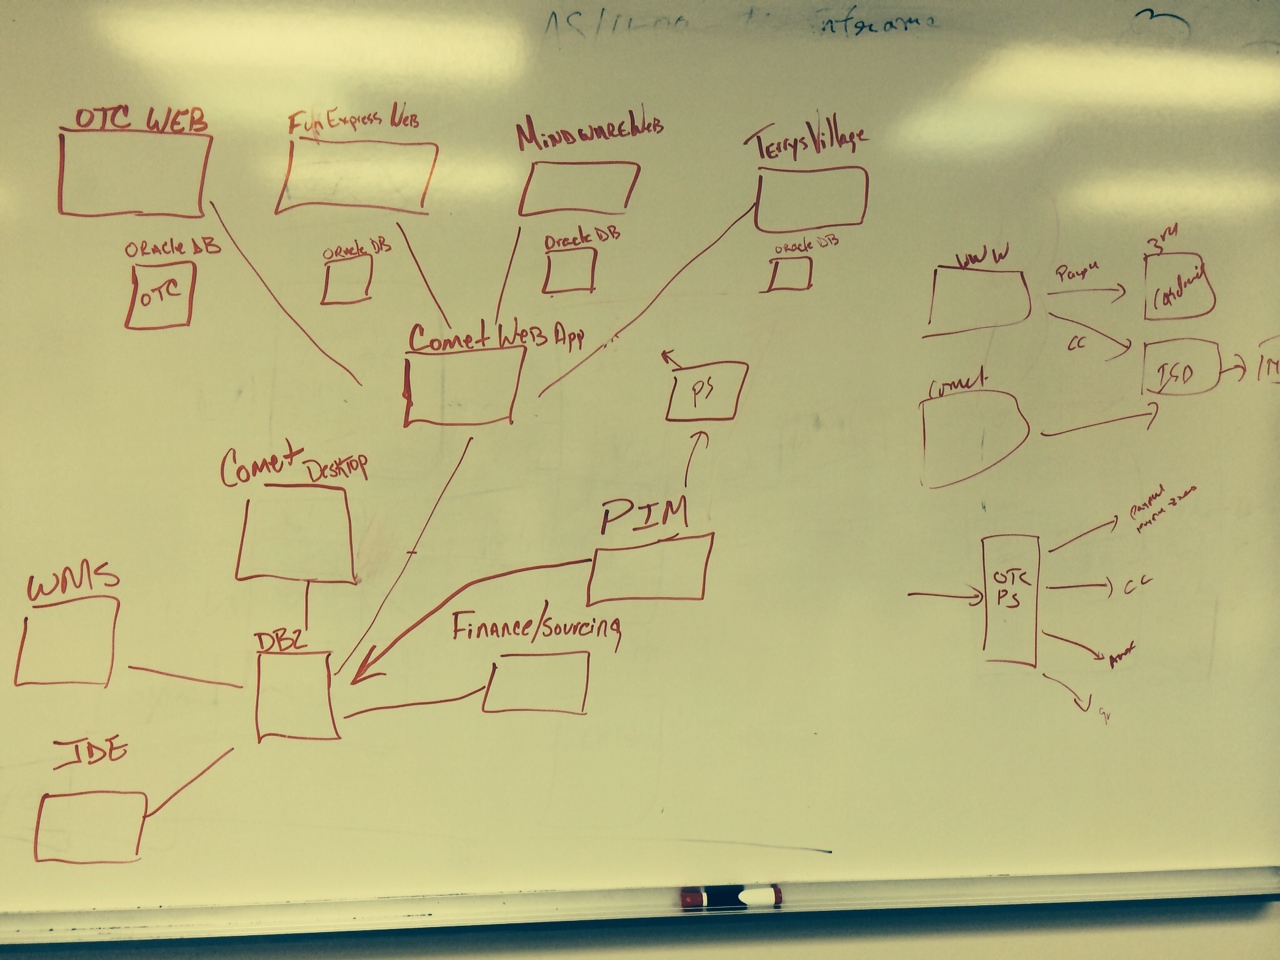 OTC WEB
FunExpress Web
MindwareWeb
TerrysVillage
Oracle DB
OTC
Oracle DB
Oracle DB
Oracle DB
Comet Web App
PS
Comet Desktop
PIM
WMS
DB2
Finance/Sourcing
JDE
WWW
3rd
CC
ISD
Comet
OTC
PS
CC